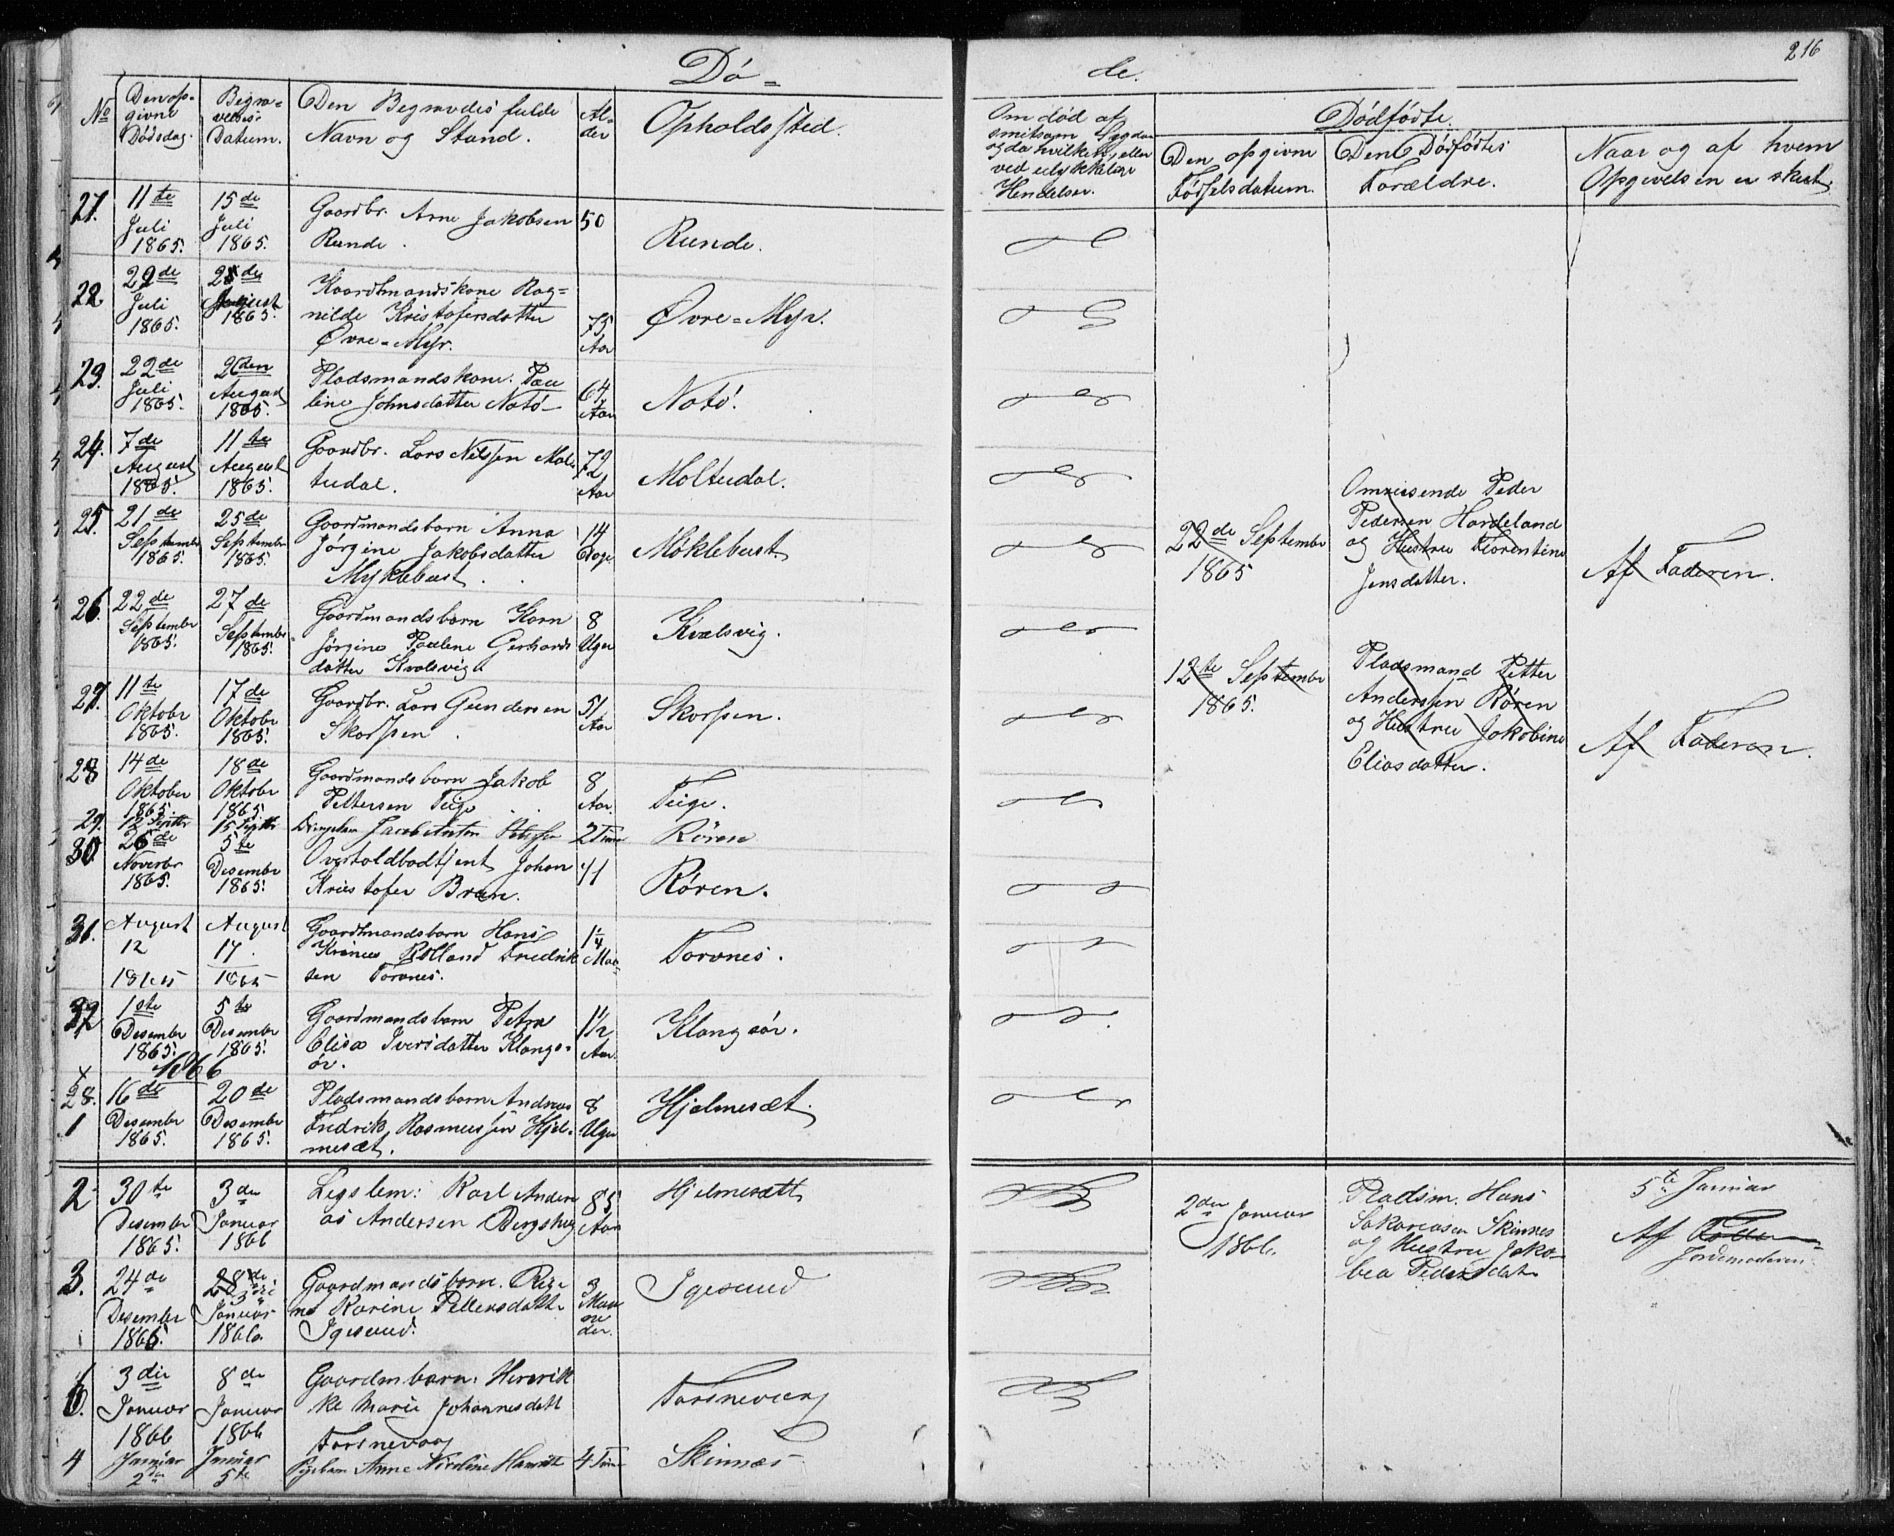 216
Dö = de.
No
Den op-
givne
Dødsdag.
Begra-
velses-
Datum.
Den Begravedes fulde
Navn og Stand.
Al-
der
Opholdssted.
Om død af
smitsom Sygdom
og da hvilken, eller
ved ulykkelige
Hendelser.
Dødfødte.
Den opgivne
Fødselsdatum.
Den Dødfødtes
Forældre.
Naar og af hvem
Opgivelsen er skeet.
21. 11te Juli 1865. 15de Juli 1865. Gaardbr. Arne Jakobsen 50
Runde. Runde.
22. 29de Juli 1865. August 1865. Kaardmandskone Rag=
nilde Kristofersdatter 75 Øvre=Myr.
Øvre=Myr. Aar
23. 22de Juli 1865. 2den August 1865. Pladsmandskone. Pau
line Johnsdatter Notø 64 Aar Notø.
24. 7de August 1865. 11te August 1865. Gaardbr. Lars Nilssen Mol
tudal. 72 Aar Moltudal.
25. 21de September 1865. 25de September 1865. Gaardmandsbarn Anna
Jørgine Jakobsdatter 14 Dage Møklebust
Myklebust.
22de September
1865
Omreisende Peder
Pedersen Hardeland
og Hustru Florentine
Jensdatter.
Af Faderen.
26. 22de September 1865. 27de September 1865. Gaardmandsbarn Karn
Jørgine Pauline Gerhards 8 Uger Kvalsvig.
datter Kvalsvig
12te September
1865.
Pladsmand Petter
Anderssen Røren
og Hustru Jakobine
Eliasdatter.
Af Faderen.
27. 11te Oktobr 1865. 17de Oktobr 1865. Gaardbr. Lars Gundersen 51 Aar Skorpen.
Skorpen
28 14de Oktober 1865. 18de Oktobr 1865. Gaardmandsbarn Jakob 8 Aar. Tuge.
Pettersen Tuge
29. 12 Septbr 15 Septbr Jacob Anton 2 Timer Røren
30. 26de Novembr 1865. 5te Desember 1865. Overtoldbetjent Johan 71 Røren.
Kristofer Bran.
31. August 12 1865 August 17. 1865 Gaardmandsbarn Hans
Rolland Fredrik 1¼ Torvnes.
sen Torvnes.
32 1ste Desember 1865. 5te Desember 1865. Gaardmandsbarn Petra
Elisa Iversdatter Klangs= 1½ Aar. Klangsør.
ør.
1866
28. 1 16de Desember 1865. 20de Desember 1865. Pladsmandsbarn Andreas 8 Uger Hjelmesæt.
Fredrik Rasmussen Hjel-
mesæt.
2 30te Desember 1865. 3de Januar 1866 Legslem: Karl Andre
as Andersen Bergshug 85 Aar Hjelmesætt
2den Januar
1866.
Pladsm. Hans
Sakariasen Skinnes
og Hustru Jako-
bea Pedersdat
5te Januar
Af
Jordemoderen.
3. 24de Desember 1865. Januar 1866 Gaardmandsbarn. Regi
ne Karine Pettersdatt. 3 Maa ne der. Igesund
Igesund.
3die Januar 1866 8de Januar 1866 Gaardmbarn: Henrik
ke Marie Johannesdatt Torsnevaag
Torsnevaag
4 Januar 2den Januar 5te Anne Nicoline Hansdt 4 Timer Skinnes